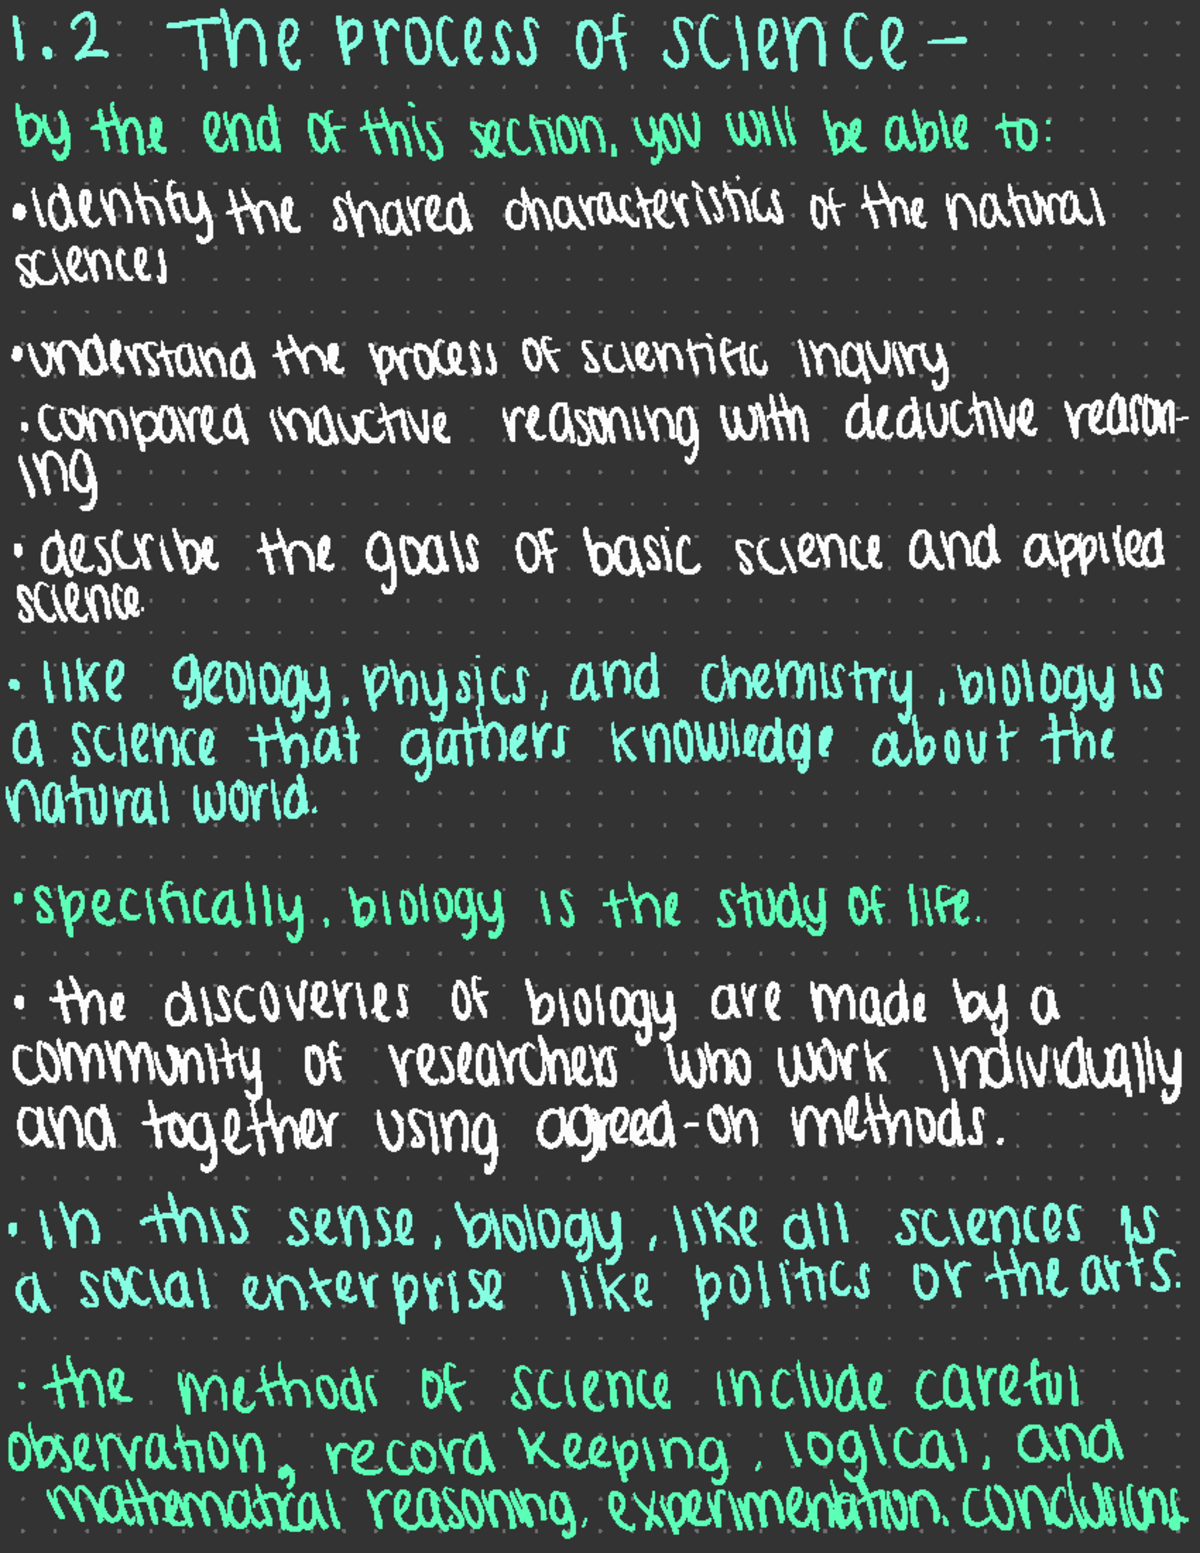 1.2 The process of science -
by the end of this section, you will be able to:
• Identify the shared characteristics of the natural
sciences
• understand the process of scientific inquiry
• compared inductive reasoning with deductive reason-
ing
• describe the goals of basic science and applied
science.
• like geology, physics, and chemistry, biology is
a science that gathers knowledge about the
natural world.
• specifically, biology is the study of life.
• the discoveries of biology are made by a
community of researchers who work individually
and together using agreed-on methods.
• In this sense, biology, like all sciences is
a social enterprise like politics or the arts.
• the methods of science include careful
observation, record keeping, logical, and
mathematical reasoning, experimentation, conclusions